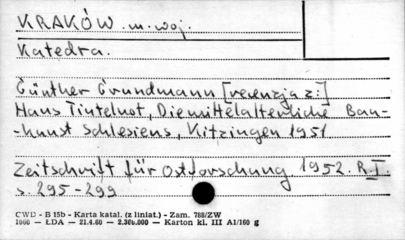 KRAKÓW. m. woj.
Katedra.
Günther Grundmann [recenzja z:]
Hans Tintelnot, Die mittelalterliche Bau-
-kunst Schlesiens, Kitzingen 1951
Zeitschrift für Ostforschung 1952. R I.
s. 295-299
CWD - B 15b - Karta katal. (z liniat.) - Zam. 788/ZW
1060 — ŁDA — 21.4.60 — 2.300.000 — Karton kl. III A1/160 g